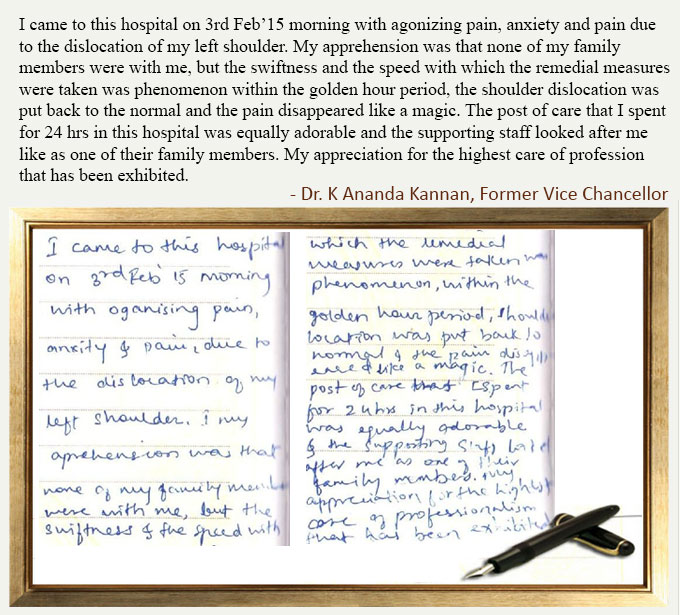 I came to this hospital on 3rd Feb’15 morning with agonizing pain, anxiety and pain due
to the dislocation of my left shoulder. My apprehension was that none of my family
members were with me, but the swiftness and the speed with which the remedial measures
were taken was phenomenon within the golden hour period, the shoulder dislocation was
put back to the normal and the pain disappeared like a magic. The post of care that I spent
for 24 hrs in this hospital was equally adorable and the supporting staff looked after me
like as one of their family members. My appreciation for the highest care of profession
that has been exhibited.
- Dr. K Ananda Kannan, Former Vice Chancellor
I came to this hospital
on 3rd Feb' 15 morning
with oganising pain,
anxity & pain, due to
the dislocation of my
left shoulder. I my
aprehension was that
none of my family
were with me, but the
swiftness & the speed with
which the remedial
measures were taken
phenomenon, within the
golden hour period,
location was put back to
normal & the pain
like a magic. The
post of care that I spent
for 24 hrs in this hospital
was equally adorable
& the supporting staff
after me as one of their
family members. my
appreciation for the highest
care of professionalism
that has been